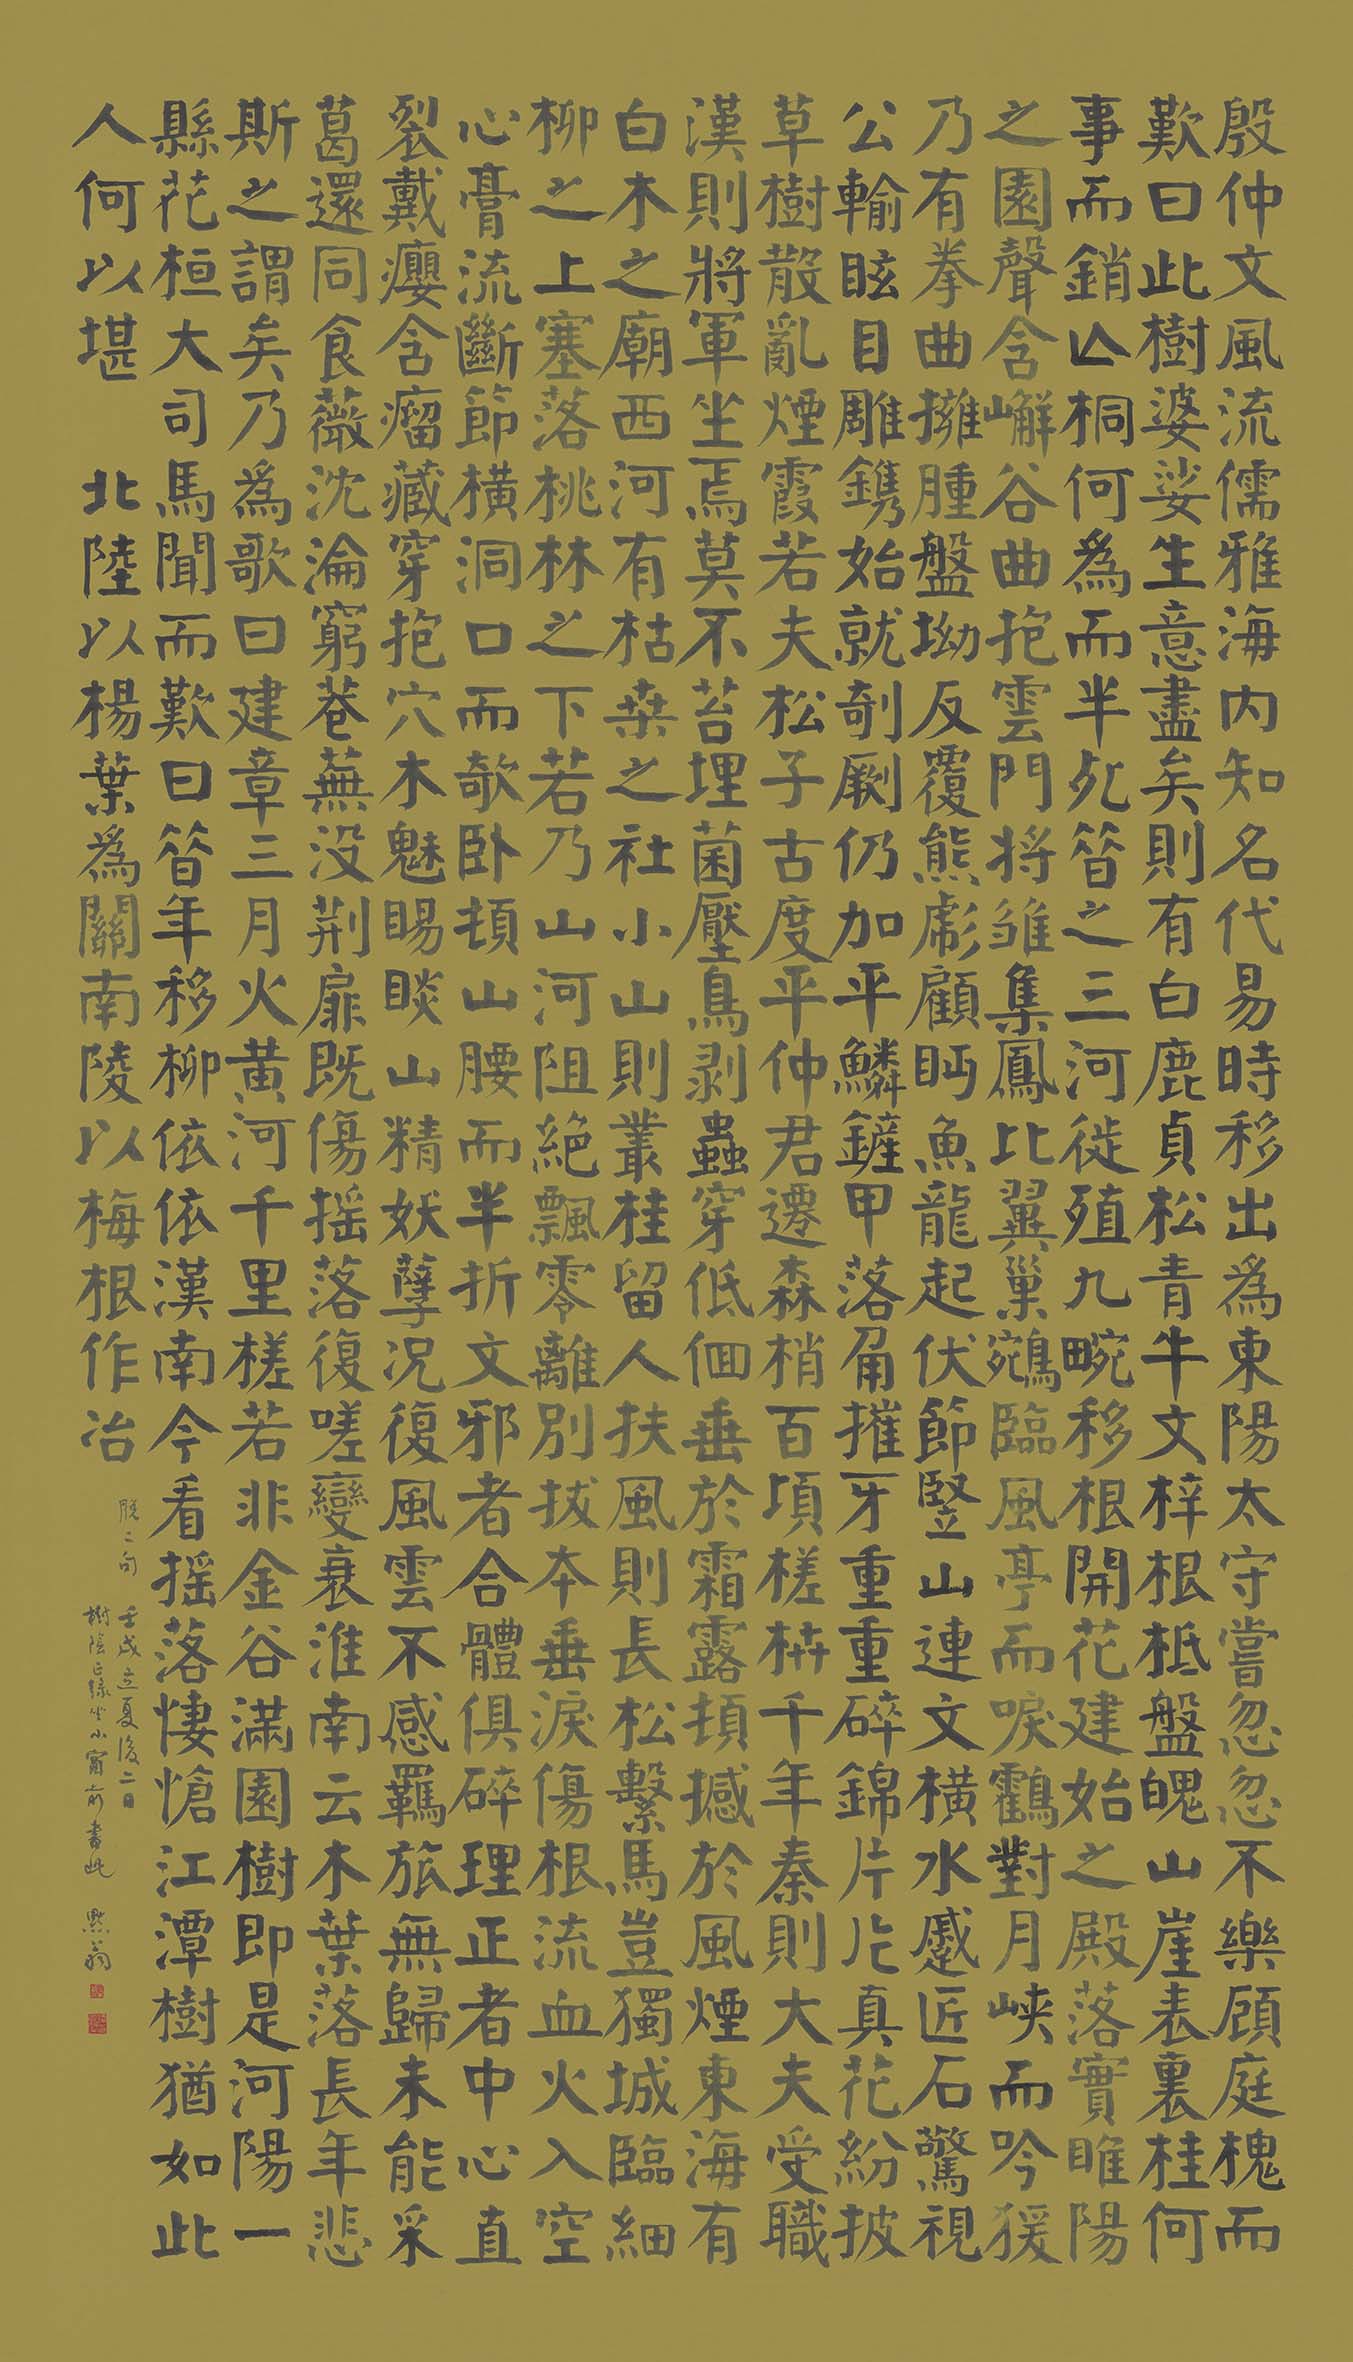 殷仲文風流儒雅海内知名代易時移出爲東陽太守嘗忽忽不樂顧庭槐而
歎曰此樹婆娑生意盡矣則有白鹿貞松青牛文梓根柢盤魄山崖表裏桂何
事而銷亡桐何爲而半死昝之三河徙殖九畹移根開花建始之殿落實睢陽
之園聲含嶰谷曲抱雲門將雛集鳳比翼巢鵷臨風亭而唳鶴對月峡而吟猨
乃有拳曲擁腫盤坳反覆熊彪顧眄魚龍起伏節竪山連文橫水蹙匠石驚視
公輸眩目雕鐫始就剞劂仍加平鱗鏟甲落角摧牙重重碎錦片片真花紛披
草樹散亂煙霞若夫松子古度平仲君遷森梢百頃槎枿千年秦則大夫受職
漢則將軍坐焉莫不苔埋菌壓鳥剥蟲穿低徊垂於霜露頓撼於風煙東海有
白木之廟西河有枯桒之社小山則叢桂留人扶風則長松繫馬豈獨城臨細
柳之上塞落桃林之下若乃山河阻絶飄零離別拔本垂淚傷根流血火入空
心膏流斷節橫洞口而欹卧頓山腰而半折文邪者合體俱碎理正者中心直
裂戴癭含瘤藏穿抱穴木魅賜睒山精妖孽況復風雲不感羈旅無歸未能采
葛還同食薇沈淪窮巷蕪没荆扉既傷搖落復嗟變衰淮南云木葉落長年悲
斯之謂矣乃爲歌曰建章三月火黄河千里槎若非金谷滿園樹即是河陽一
縣花桓大司馬聞而歎曰昝年移柳依依漢南今看搖落悽愴江潭樹猶如此
人何以堪 北陸以楊葉爲關南陵以梅根作冶
脱二句
壬戌立夏後二日
樹陰正綠坐小窗前書此 默翁